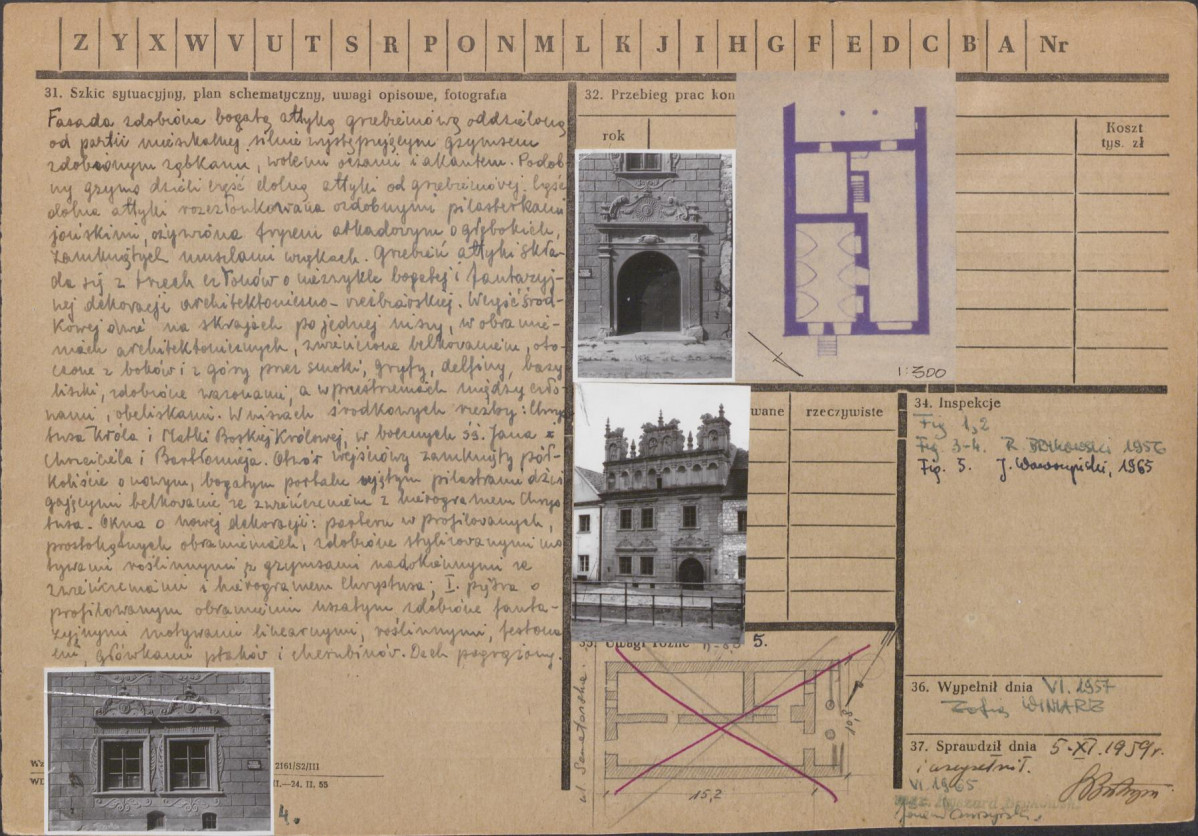 Z Y X W V U T S R P O N M L K J I H G F E D C B A Nr
31. Szkic sytuacyjny, plan schematyczny, uwagi opisowe, fotografia
Fasada zdobiona bogatą attyką grzebieniową oddzieloną
od partii mieszkalnej silnie występującym gzymsem
zdobionym ząbkami, wolemi oczami i akantem. Podob-
ny gzyms dzieli część dolną attyki od grzebieniowej. Część
dolna attyki rozczłonkowana ozdobnymi pilasterkami
jońskimi, ożywiona fryzem arkadowym o głębokich,
zamkniętych muszlami wnękach. Grzebień attyki skła-
da się z trzech członów o niezwykle bogatej i fantazyj-
nej dekoracji architektoniczno-rzeźbiarskiej. Wyjść środ-
kowej dwie na skrajach po jednej niszy, w obramie-
niach architektonicznych, zwieńczone belkowaniem, oto-
czone z boków i z góry przez smoki, gryfy, delfiny, bazy-
liszki, zdobione wazonami, a w przestrzeniach między czło-
nami, obeliskami. W niszach środkowych rzeźby: Chrys-
tusa Króla i Matki Boskiej Królowej, w bocznych śś. Jana
Chrzciciela i Bartłomieja. Otwór wejściowy zamknięty pół-
koliście o nowym, bogatym portalu ujętym pilastrami dźwi-
gającymi belkowanie ze zwieńczeniem z hierogramem Chrys-
tusa. Okna o nowej dekoracji: parteru w profilowanych,
prostokątnych obramieniach, zdobione stylizowanymi mo-
tywami roślinnymi z gzymsami nadokiennymi ze
zwieńczeniami i hierogramem Chrystusa; I. piętra o
profilowanym obramieniu uszatym zdobione fanta-
zyjnymi motywami linearnymi, roślinnymi, festona-
mi, główkami ptaków i cherubinów. Dach pogrążony.
2161/S2/III
24. II. 55
4.
32. Przebieg prac kon
rok
Koszt
tys. zł
1:300
wane
rzeczywiste
35. Uwagi różne
5.
10,8
15,2
34. Inspekcje
Fig 1,2
Fig 3-4. R. BRYKOWSKI 1956
Fig. 5. 1965
36. Wypełnił dnia VI. 1957
Zofia WINIARZ
37. Sprawdził dnia 5-XI.1959r.
i uzupełnił.
VI 1965